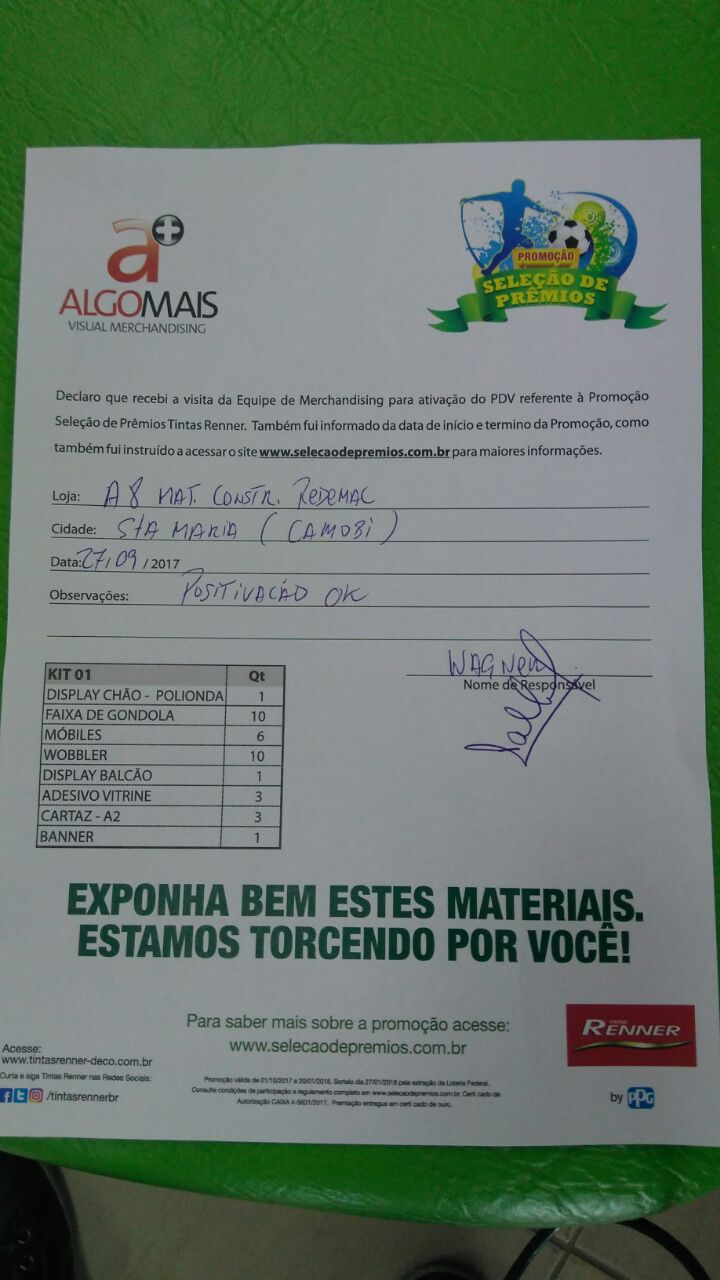 a+
ALGOMAIS
VISUAL MERCHANDISING
PROMOÇÃO
SELEÇÃO DE
PRÊMIOS
Declaro que recebi a visita da Equipe de Merchandising para ativação do PDV referente à Promoção
Seleção de Prêmios Tintas Renner. Também fui informado da data de início e termino da Promoção, como
também fui instruído a acessar o site www.selecaodepremios.com.br para maiores informações.
Loja: A8 MAT. CONSTR. REDEMAC
Cidade: STA MARIA (CAMOBI)
Data: 27/09/2017
Observações: POSITIVAÇÃO OK
WAGNER
Nome de Responsável
KIT 01 Qt
DISPLAY CHÃO - POLIONDA 1
FAIXA DE GONDOLA 10
MÓBILES 6
WOBBLER 10
DISPLAY BALCÃO 1
ADESIVO VITRINE 3
CARTAZ - A2 3
BANNER 1
EXPONHA BEM ESTES MATERIAIS.
ESTAMOS TORCENDO POR VOCÊ!
Para saber mais sobre a promoção acesse:
www.selecaodepremios.com.br
TINTAS
RENNER
by PPG
Acesse:
www.tintasrenner-deco.com.br
Curta e siga Tintas Renner nas Redes Sociais:
/tintasrennerbr
Promoção válida de 01/10/2017 a 20/01/2018. Sorteio dia 27/01/2018 pela extração da Loteria Federal.
Consulte condições de participação e regulamento completo em www.selecaodepremios.com.br. Certi cado de
Autorização CAIXA 4-5631/2017. Premiação entregue em certi cado de ouro.